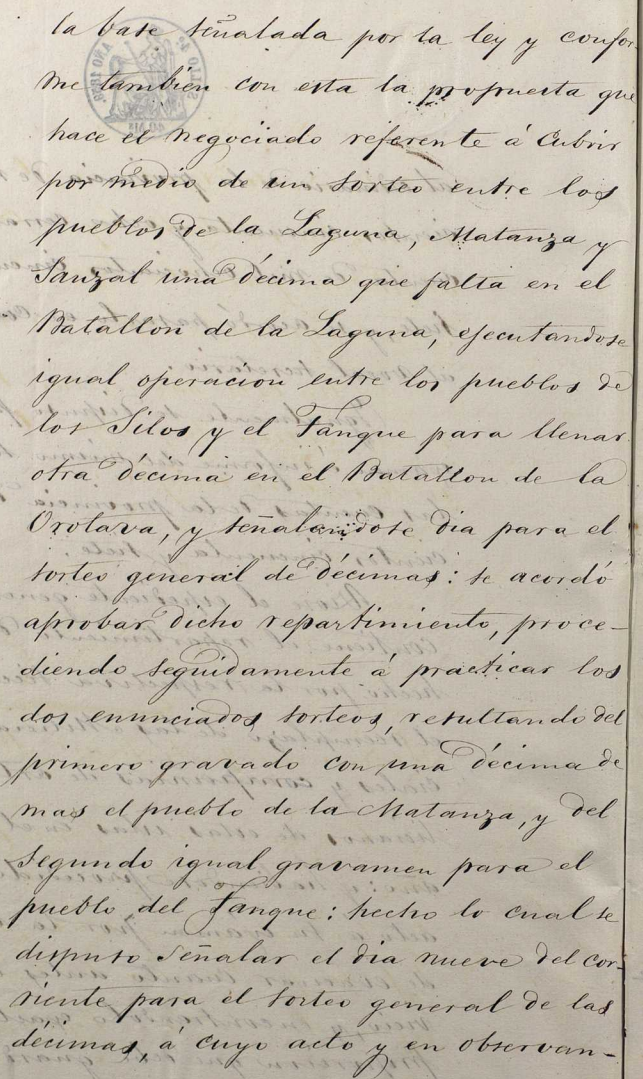 la base señalada por la ley y confor-
me tambien con esta la propuesta que
hace el negociado referente á cubrir
por medio de un sorteo entre los
pueblos de la Laguna, Matanza y
Sauzal una décima que falta en el
Batallon de la Laguna, ejecutandose
igual operacion entre los pueblos de
los Silos y el Tanque para llenar
otra décima en el Batallon de la
Orotava, y señalandose dia para el
sorteo general de décimas: se acordó
aprobar dicho repartimiento, proce-
diendo seguidamente á practicar los
dos enunciados sorteos, resultando del
primero gravado con una décima de
mas el pueblo de la Matanza, y del
segundo igual gravamen para el
pueblo del Tanque: hecho lo cual se
dispuso señalar el dia nueve del cor-
riente para el sorteo general de las
décimas, á cuyo acto y en observan-